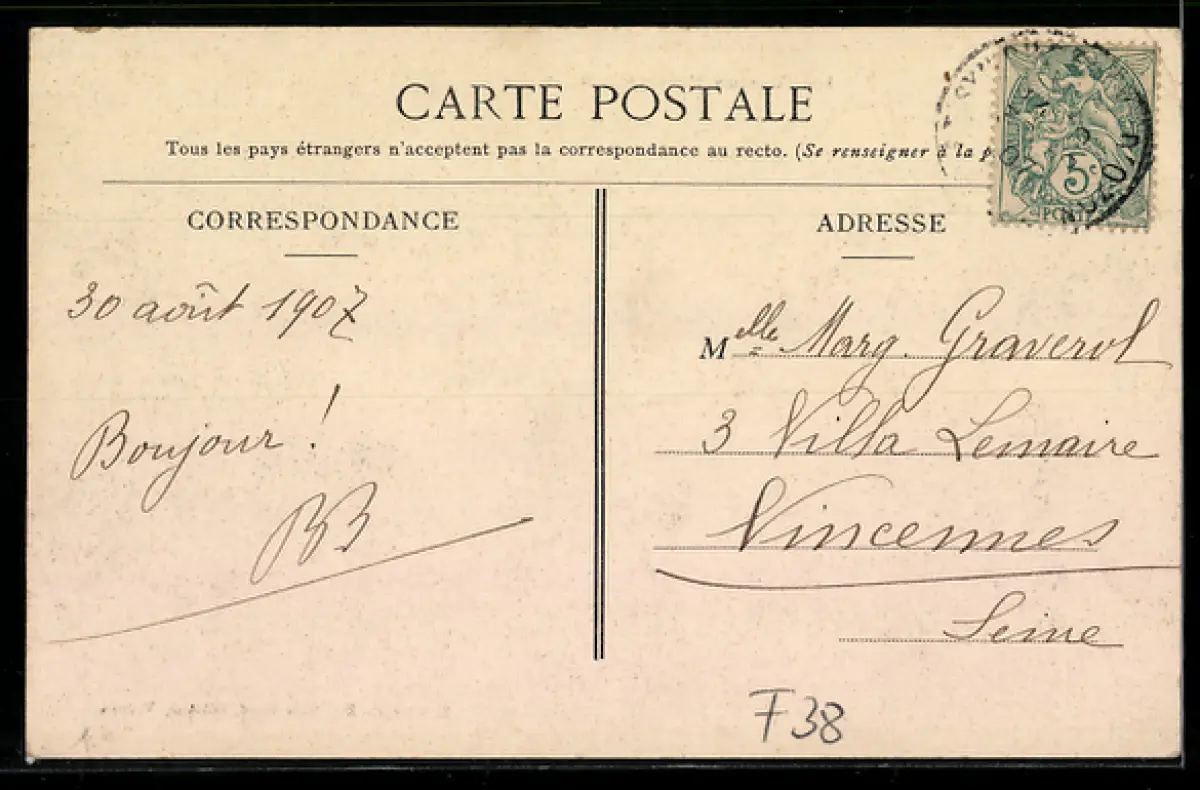 CARTE POSTALE
Tous les pays étrangers n'acceptent pas la correspondance au recto. (Se renseigner à la p
CORRESPONDANCE
30 août 1907
Bonjour !
BB
ADRESSE
5c
POST
Melle Marg. Graverol
3 Villa Lemaire
Vincennes
Seine
F38